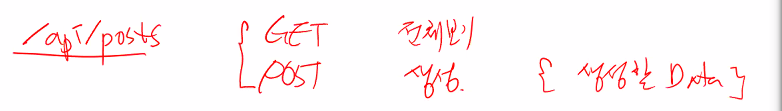 /api/posts { GET 전체보기
POST 생성. { 생성할 Data }